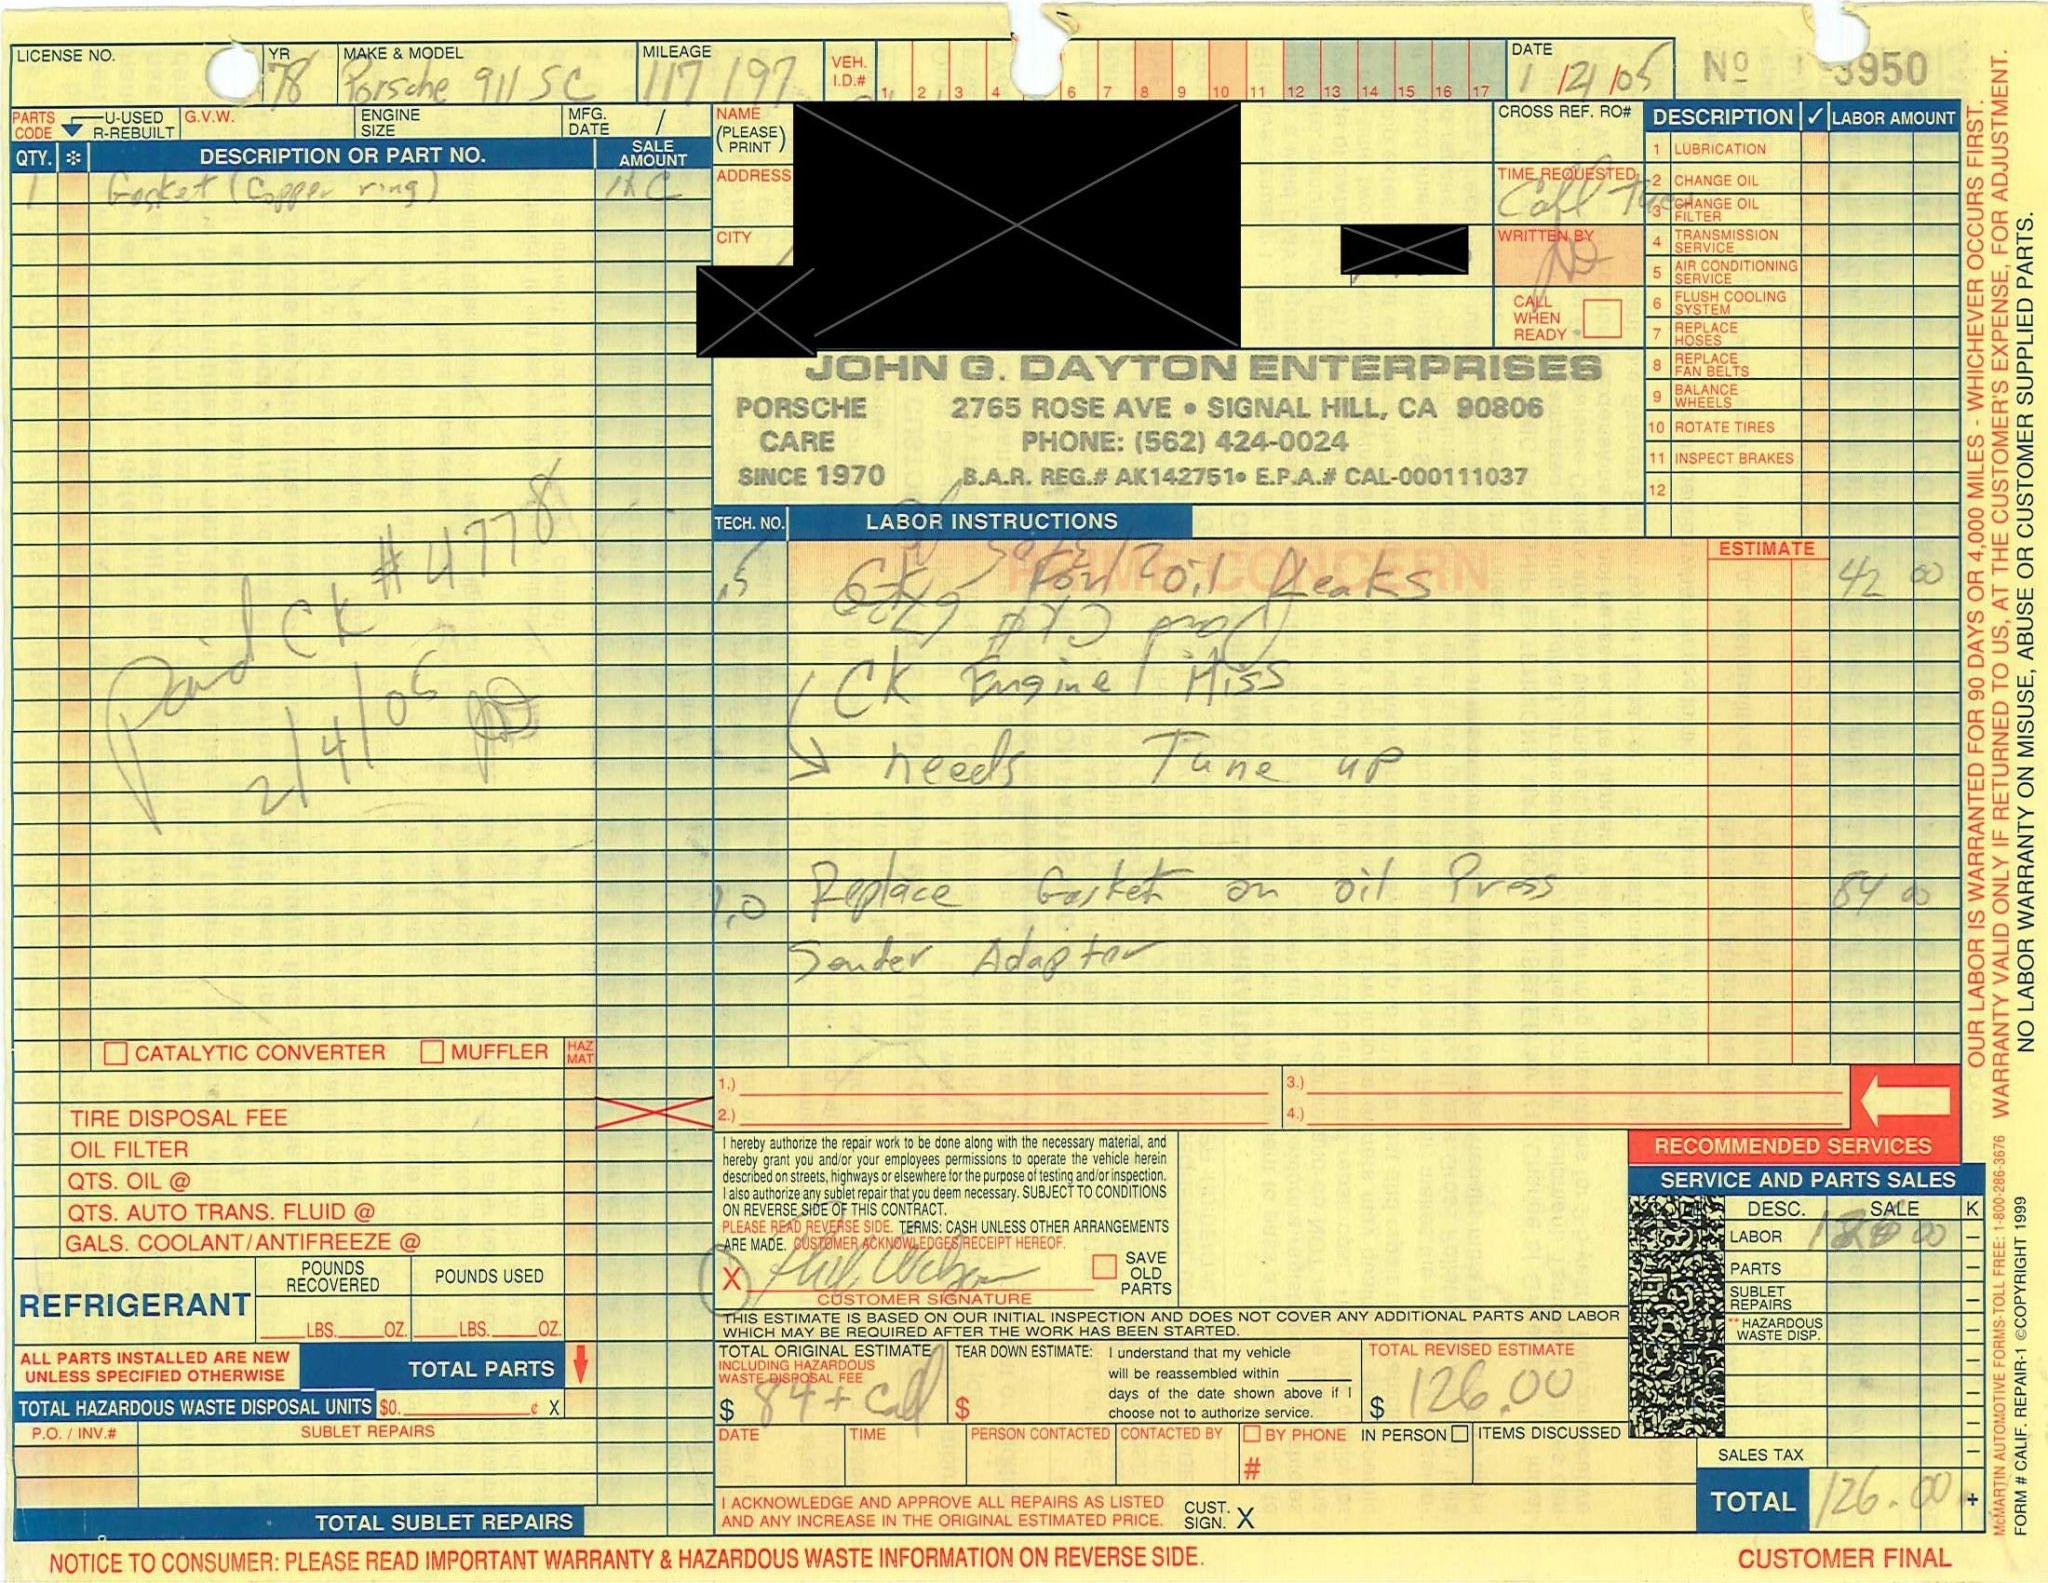 LICENSE NO.
YR
78
MAKE & MODEL
Porsche 911 SC
MILEAGE
117197
VEH. I.D.#
1 2 3 4 6 7 8 9 10 11 12 13 14 15 16 17
DATE
1/21/05
Nº 3950
PARTS CODE
U-USED
R-REBUILT
G.V.W.
ENGINE SIZE
MFG. DATE /
QTY. * DESCRIPTION OR PART NO. SALE AMOUNT
1 Gasket (Copper ring) n/c
Paid CK #4778
2/4/06
CATALYTIC CONVERTER MUFFLER HAZ MAT
TIRE DISPOSAL FEE
OIL FILTER
QTS. OIL @
QTS. AUTO TRANS. FLUID @
GALS. COOLANT/ANTIFREEZE @
REFRIGERANT
POUNDS RECOVERED
POUNDS USED
LBS. OZ. LBS. OZ.
ALL PARTS INSTALLED ARE NEW
UNLESS SPECIFIED OTHERWISE
TOTAL PARTS
TOTAL HAZARDOUS WASTE DISPOSAL UNITS $0. ¢ X
P.O. / INV.# SUBLET REPAIRS
TOTAL SUBLET REPAIRS
NAME
(PLEASE PRINT)
ADDRESS
CITY
CROSS REF. RO#
TIME REQUESTED
Call
WRITTEN BY
CALL WHEN READY
JOHN G. DAYTON ENTERPRISES
PORSCHE CARE SINCE 1970
2765 ROSE AVE • SIGNAL HILL, CA 90806
PHONE: (562) 424-0024
B.A.R. REG.# AK142751• E.P.A.# CAL-000111037
DESCRIPTION ✓ LABOR AMOUNT
1 LUBRICATION
2 CHANGE OIL
3 CHANGE OIL FILTER
4 TRANSMISSION SERVICE
5 AIR CONDITIONING SERVICE
6 FLUSH COOLING SYSTEM
7 REPLACE HOSES
8 REPLACE FAN BELTS
9 BALANCE WHEELS
10 ROTATE TIRES
11 INSPECT BRAKES
12
TECH. NO. LABOR INSTRUCTIONS
PRIME CONCERN
ESTIMATE
.5 CK For Oil Leaks 42 00
CK Engine Miss
→ needs Tune up
1.0 Replace Gasket on oil Press 84 00
Sender Adapter
1.)
2.)
3.)
4.)
RECOMMENDED SERVICES
I hereby authorize the repair work to be done along with the necessary material, and
hereby grant you and/or your employees permissions to operate the vehicle herein
described on streets, highways or elsewhere for the purpose of testing and/or inspection.
I also authorize any sublet repair that you deem necessary. SUBJECT TO CONDITIONS
ON REVERSE SIDE OF THIS CONTRACT.
PLEASE READ REVERSE SIDE. TERMS: CASH UNLESS OTHER ARRANGEMENTS
ARE MADE. CUSTOMER ACKNOWLEDGES RECEIPT HEREOF.
X
CUSTOMER SIGNATURE
SAVE OLD PARTS
THIS ESTIMATE IS BASED ON OUR INITIAL INSPECTION AND DOES NOT COVER ANY ADDITIONAL PARTS AND LABOR
WHICH MAY BE REQUIRED AFTER THE WORK HAS BEEN STARTED.
TOTAL ORIGINAL ESTIMATE
INCLUDING HAZARDOUS
WASTE DISPOSAL FEE
$ 84 + call
TEAR DOWN ESTIMATE:
$
I understand that my vehicle
will be reassembled within
days of the date shown above if I
choose not to authorize service.
TOTAL REVISED ESTIMATE
$ 126.00
DATE TIME PERSON CONTACTED CONTACTED BY BY PHONE IN PERSON ITEMS DISCUSSED
#
I ACKNOWLEDGE AND APPROVE ALL REPAIRS AS LISTED
AND ANY INCREASE IN THE ORIGINAL ESTIMATED PRICE.
CUST. SIGN. X
SERVICE AND PARTS SALES
DESC. SALE K
LABOR 126 00 –
PARTS –
SUBLET REPAIRS –
** HAZARDOUS WASTE DISP. –
SALES TAX –
TOTAL 126.00 +
NOTICE TO CONSUMER: PLEASE READ IMPORTANT WARRANTY & HAZARDOUS WASTE INFORMATION ON REVERSE SIDE.
CUSTOMER FINAL
OUR LABOR IS WARRANTED FOR 90 DAYS OR 4,000 MILES - WHICHEVER OCCURS FIRST.
WARRANTY VALID ONLY IF RETURNED TO US, AT THE CUSTOMER'S EXPENSE, FOR ADJUSTMENT.
NO LABOR WARRANTY ON MISUSE, ABUSE OR CUSTOMER SUPPLIED PARTS.
McMARTIN AUTOMOTIVE FORMS-TOLL FREE: 1-800-286-3676
FORM # CALIF. REPAIR-1 ©COPYRIGHT 1999